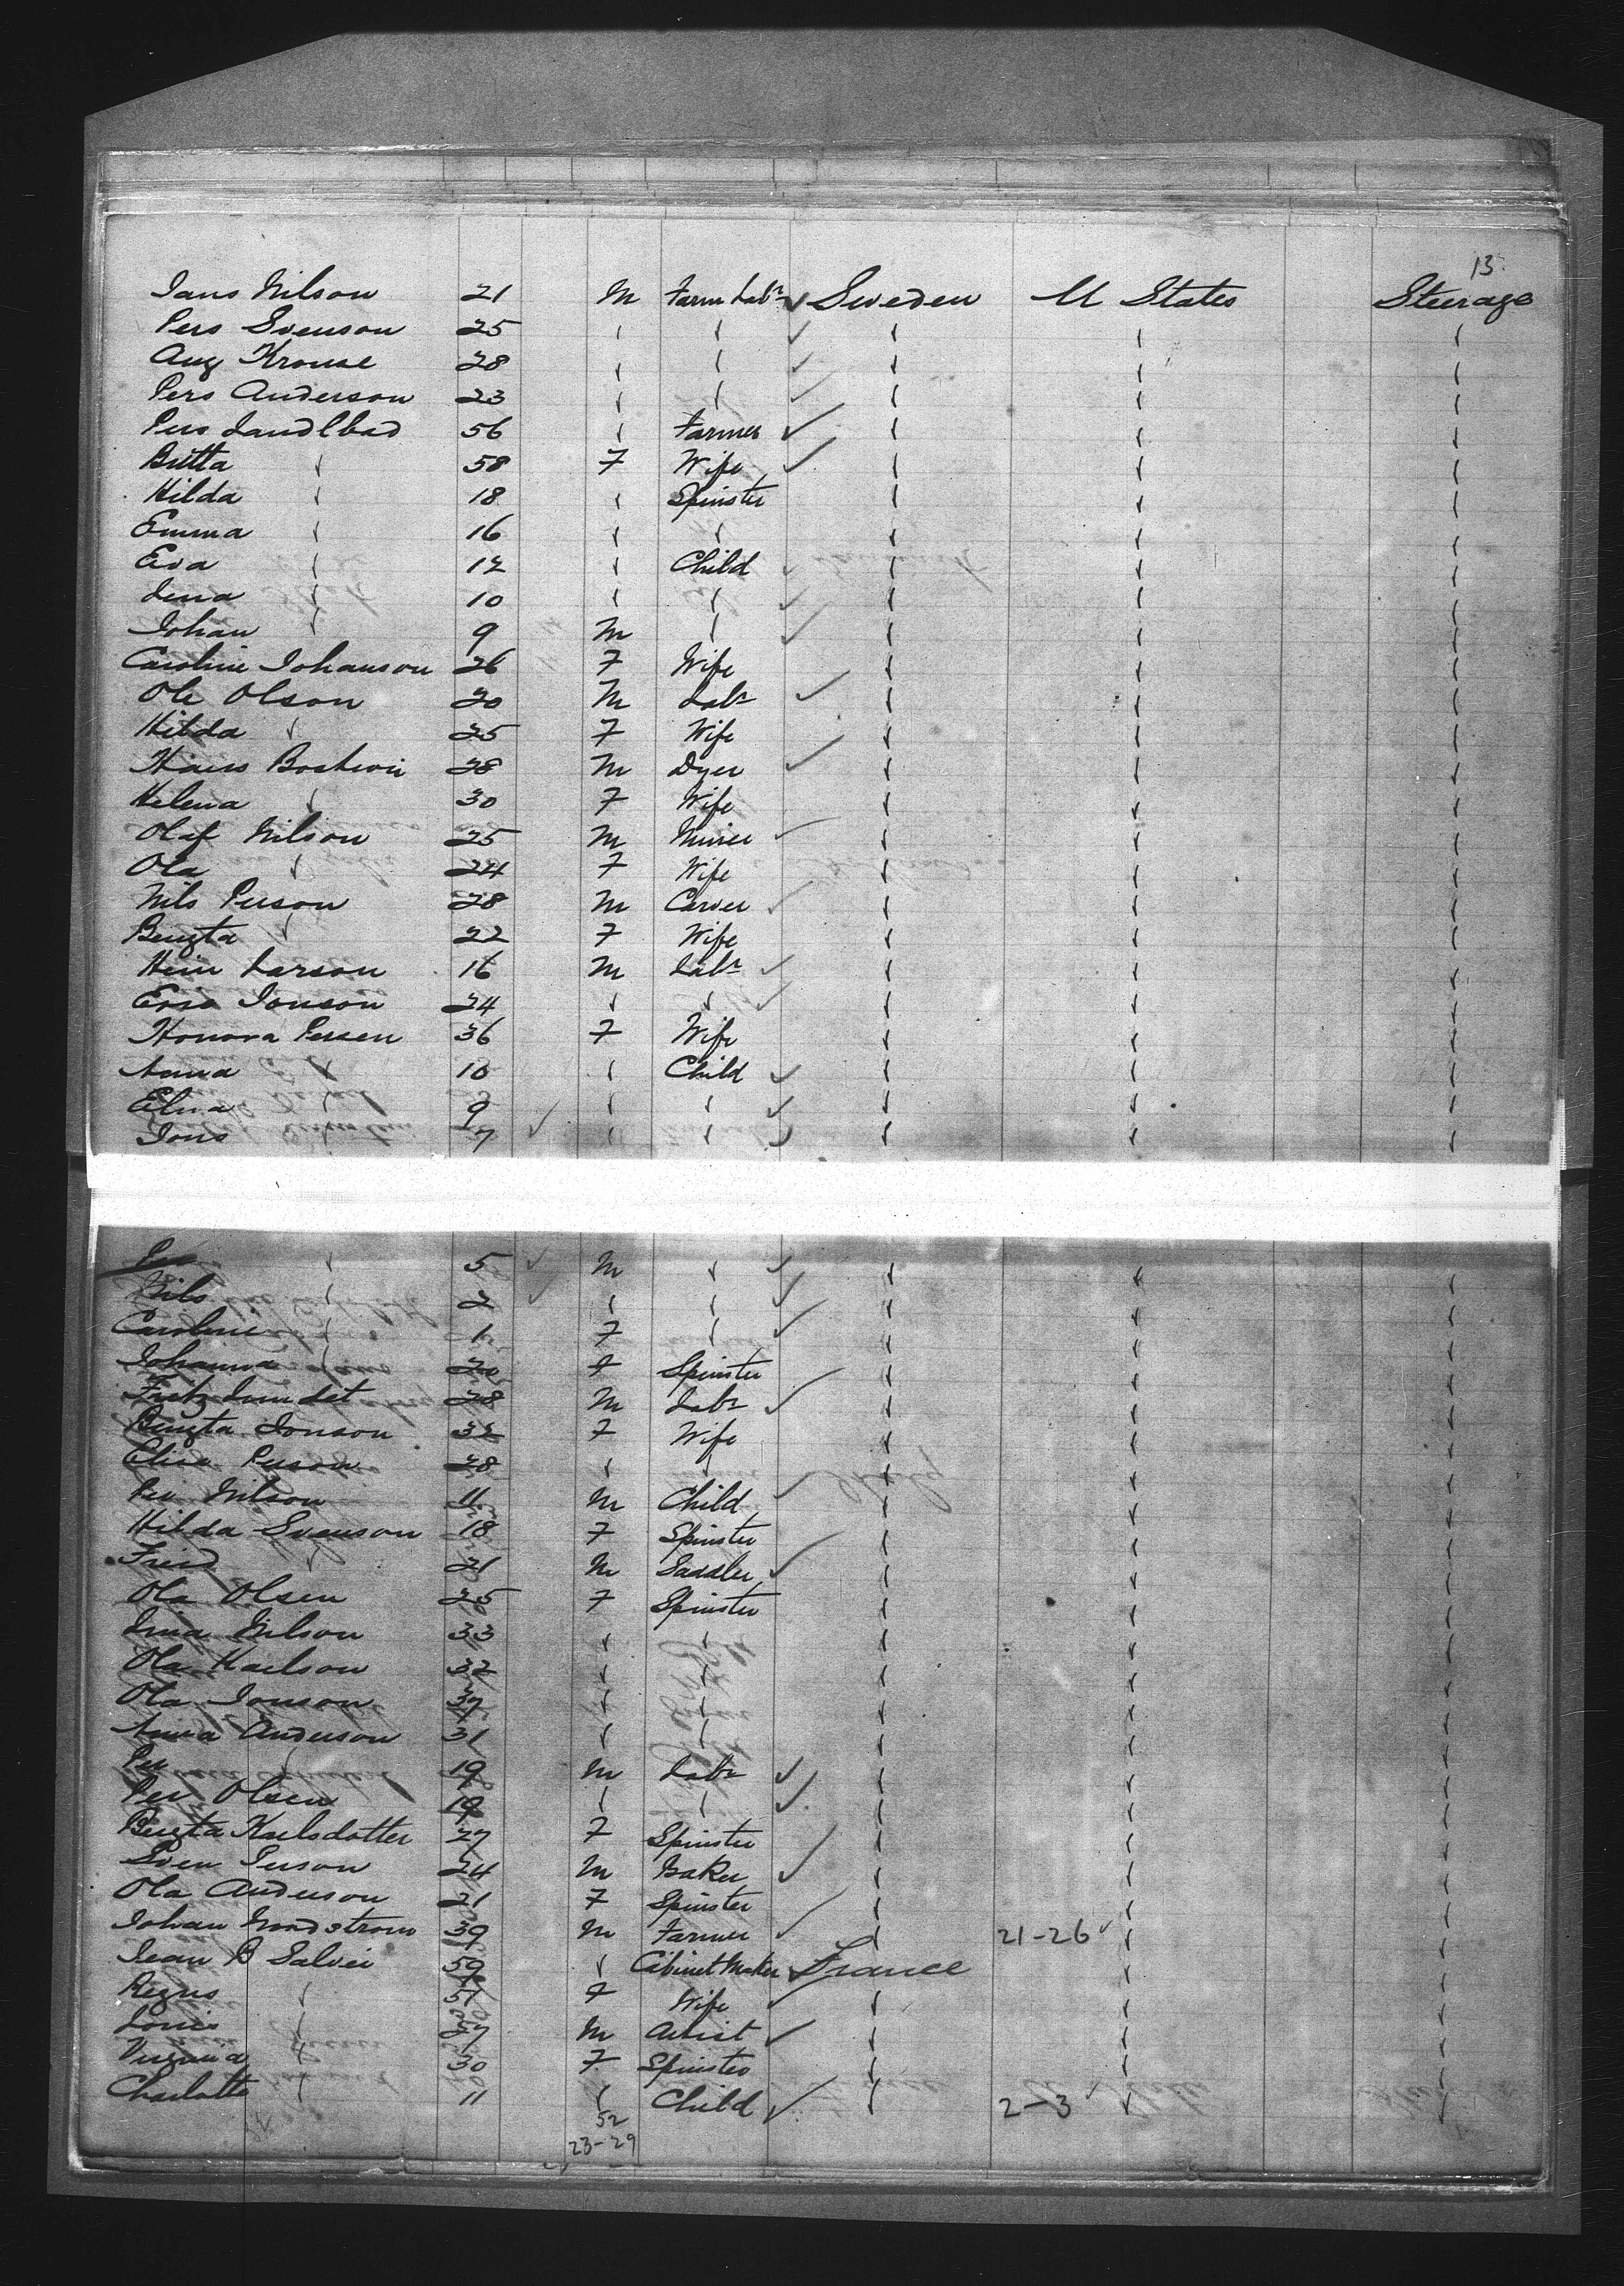 13.
Jans Nilson 21 M Farm Labr ✓ Sweden U States Steerage
Pers Svenson 25 " " ✓ " " "
Aug Krouse 28 " " ✓ " " "
Pers Anderson 23 " " ✓ " " "
Pers Landlbad 56 " Farmer ✓ " " "
Britta " 58 F Wife ✓ " " "
Hilda " 18 " Spinster " " "
Emma " 16 " " " " "
Eva " 12 " Child ✓ " " "
Lena " 10 " " ✓ " " "
Johan " 9 M " ✓ " " "
Caroline Johanson 26 F Wife " " "
Ole Olson 20 M Labr ✓ " " "
Hilda " 25 F Wife " " "
Hans 28 M Dyer ✓ " " "
Helena " 30 F Wife " " "
Olaf Nilson 25 M Miner ✓ " " "
Ola " 24 F Wife " " "
Nils Person 28 M Carver ✓ " " "
Bengta " 22 F Wife " " "
Larson 16 M Labr ✓ " " "
Eric Jonson 24 " " ✓ " " "
Honora Persen 36 F Wife " " "
Anna " 10 " Child ✓ " " "
Elna " 9 " " ✓ " " "
Jons 7 ✓ " " ✓ " " "
Per " 5 ✓ M " ✓ " " "
Nils " 2 ✓ " " ✓ " " "
Caroline " 1 F " ✓ " " "
Johanna " 20 F Spinster " " "
Fritz 28 M Labr ✓ " " "
Bengta Jonson 32 F Wife " " "
Elisa Person 28 " " " " "
Per Nilson 11 M Child ✓ " " "
Hilda Svenson 18 F Spinster " " "
Fried " 21 M Saddler ✓ " " "
Ola Olsen 25 F Spinster " " "
Nilson 33 " " " " "
Ola Karlson 32 " " " " "
Ola Jonson 37 " " " " "
Anna Anderson 31 " " " " "
Per " 19 M Labr ✓ " " "
Per Olsen 19 " " ✓ " " "
Bengta Karlsdotter 27 F Spinster " " "
Sven Person 24 M Baker ✓ " " "
Ola Anderson 21 F Spinster " " "
Johan Nordstrom 39 M Farmer ✓ " 21-26 ✓ " "
Jean B Salvei 59 " Cabinet Maker ✓ France " "
Regns " 51 F Wife " " "
Louis " 27 M Artist ✓ " " "
Virginia " 30 F Spinster " " "
Charlotte " 11 " Child ✓ " 2-3 ✓ " "
52
23-29